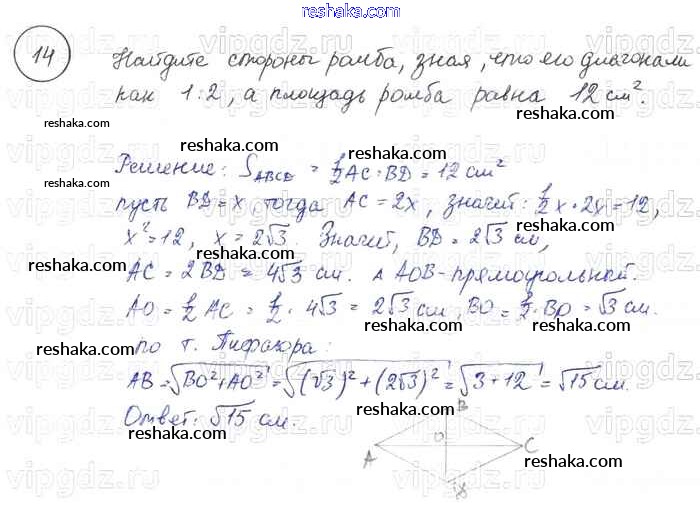 reshaka.com
14
Найдите стороны ромба, зная, что его диагонали
как 1:2, а площадь ромба равна 12 см².
reshaka.com
reshaka.com
Решение: S_ABCD = 1/2 AC · BD = 12 см²
reshaka.com
пусть BD = x, тогда AC = 2x, значит: 1/2 x · 2x = 12,
x² = 12, x = 2√3. Значит, BD = 2√3 см,
reshaka.com
AC = 2BD = 4√3 см. △ AOB - прямоугольный.
AO = 1/2 AC = 1/2 · 4√3 = 2√3 см, BO = 1/2 · BD = √3 см.
reshaka.com
по т. Пифагора:
reshaka.com
AB = √BO² + AO² = √(√3)² + (2√3)² = √3 + 12 = √15 см.
reshaka.com
Ответ: √15 см.
reshaka.com
B
O
A
C
D
reshaka.com
vipgdz.ru